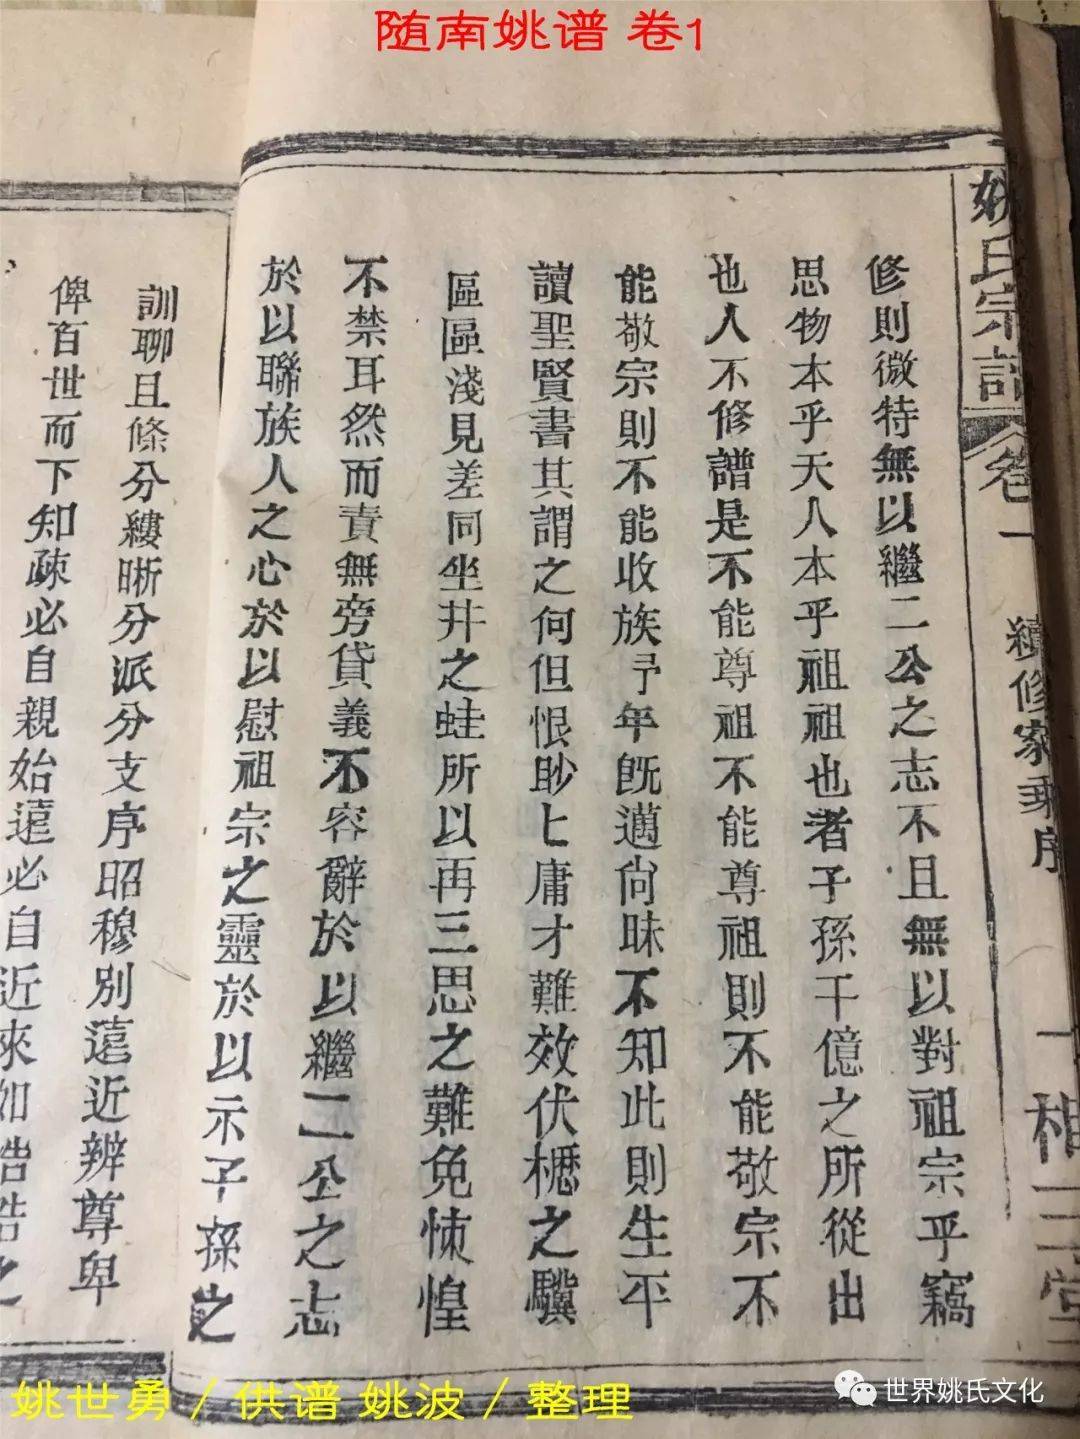 随南姚谱 卷1
姚氏宗譜 卷一 續修家乘序 一 相三堂
修則微特無以繼二公之志不且無以對祖宗乎竊
思物本乎天人本乎祖祖也者子孫千億之所從出
也人不修譜是不能尊祖不能尊祖則不能敬宗不
能敬宗則不能收族予年旣邁尙昧不知此則生平
讀聖賢書其謂之何但恨眇乚庸才難效伏櫪之驥
區區淺見差同坐井之蛙所以再三思之難免悚惶
不禁耳然而責無旁貸義不容辭於以繼二公之志
於以聯族人之心於以慰祖宗之靈於以示子孫之
訓聊且條分縷晰分派分支序昭穆別遠近辨尊卑
俾百世而下知疎必自親始遠必自近來如皓皓之
姚世勇/供谱 姚波/整理
世界姚氏文化